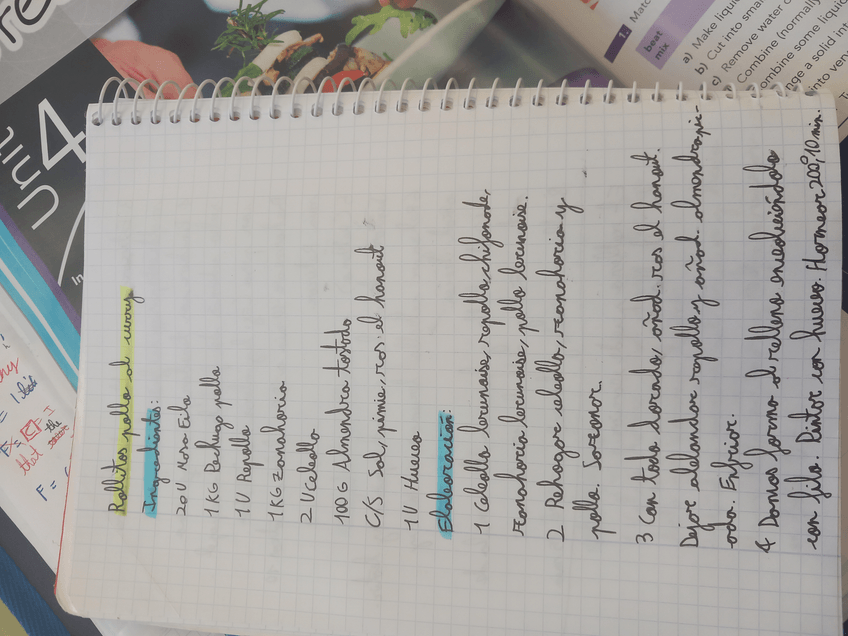 Rollitos pollo al curry
Ingredientes:
20 U Masa Filo
1 KG Pechuga pollo
1 U Repollo
1 KG Zanahoria
2 U Cebolla
100 G Almendra tostada
C/S Sal, pimie, ras el hanout
1 U Huevo
Elaboración:
1 Cebolla brunoise, repollo chifonade,
zanahoria brunoise, pollo brunoise.
2 Rehogar cebolla, zanahoria y
pollo. Sazonar.
3 Con todo dorado, añad. ras el hanout.
Dejar ablandar repollo y añad. almendra pic-
ada. Enfriar.
4 Damos forma al relleno envolviéndolo
con filo. Pintar con huevo. Hornear 200º, 10 min.
Unit 4
In
1. Matc
beat
mix
a) Make liqui
b) Cut into smal
c) Remove water o
Combine (normally
ombine some liquid
nge a solid int
into ven
= I lik
the
that same
F =